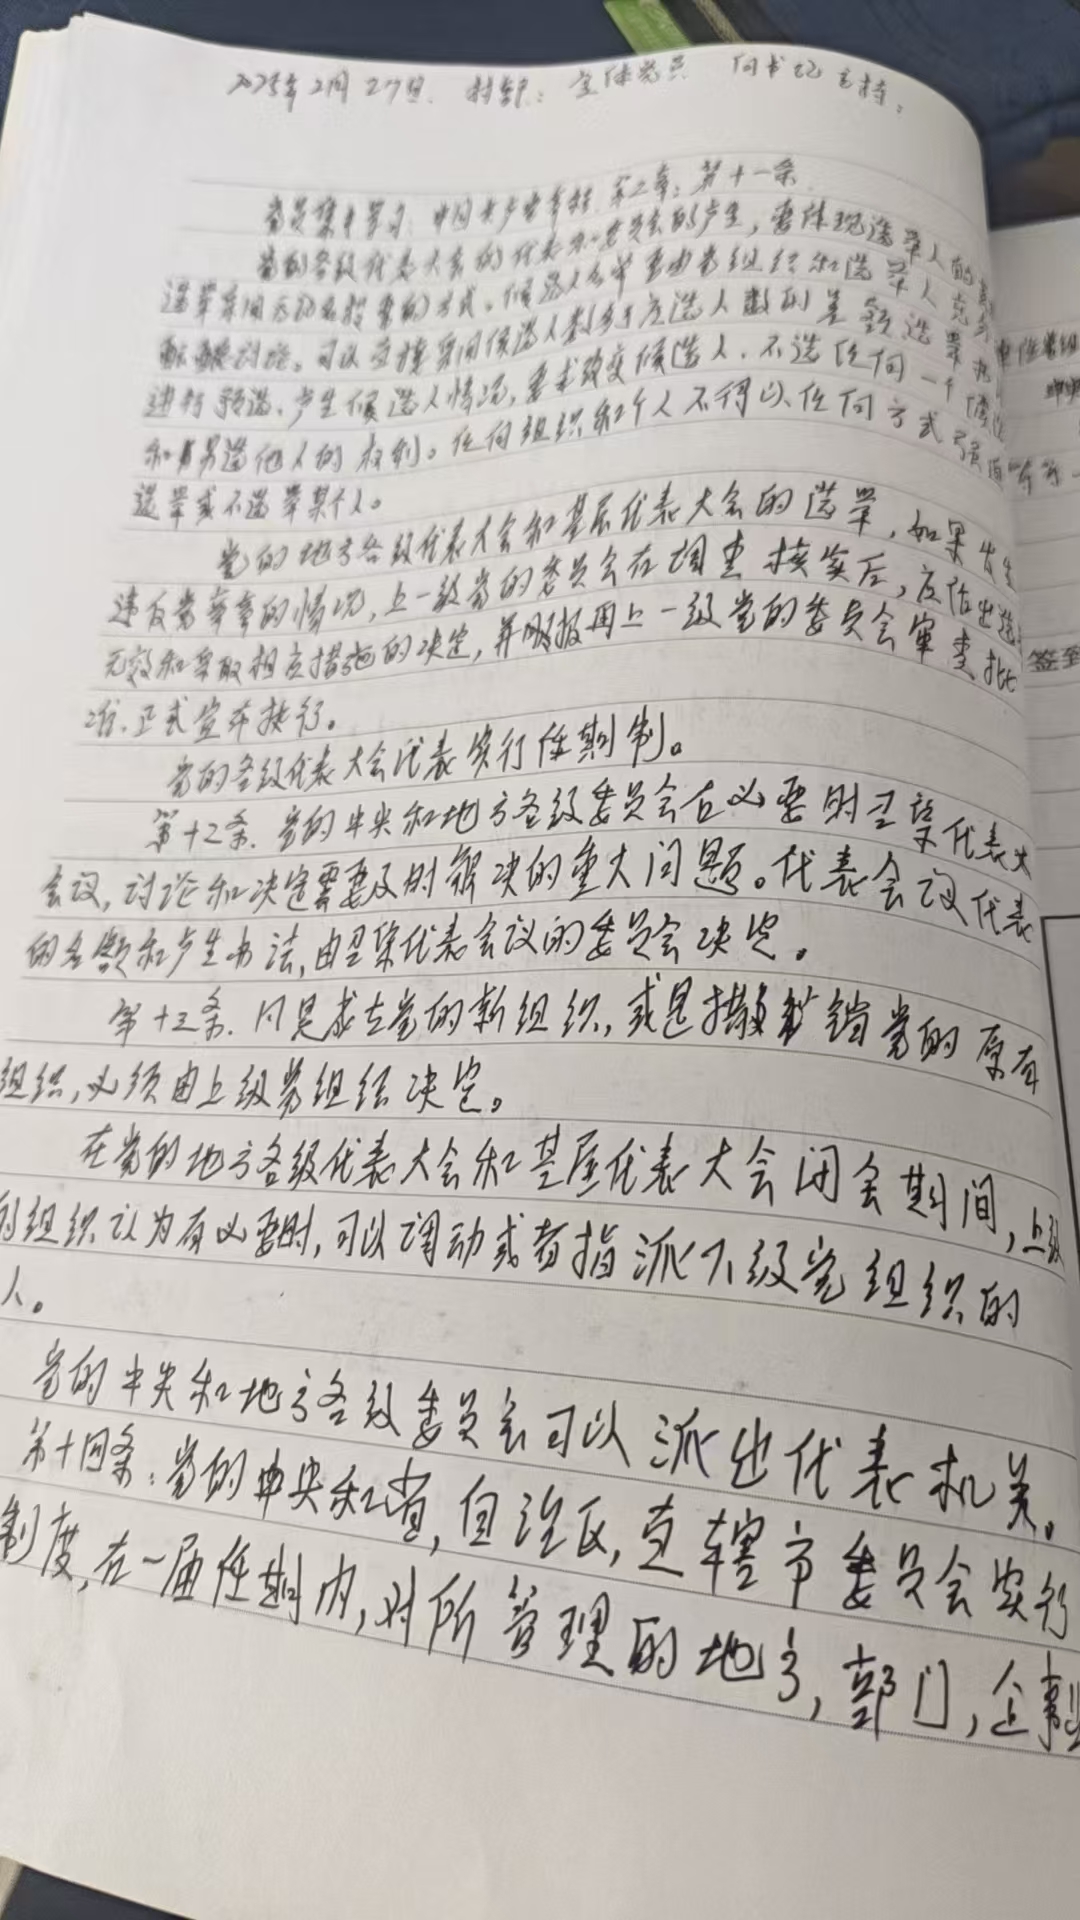 2025年2月27日. 村部: 全体党员 何书记主持:
党员集中学习: 中国共产党章程 第二章: 第十一条
党的各级代表大会的代表和委员会的产生, 要体现选举人的
选举采用无记名投票的方式。候选人名单要由党组织和选举人充分
酝酿讨论。可以直接采用候选人数多于应选人数的差额选举
进行预选、产生候选人情况, 要求改变候选人、不选任何一个候选
和另选他人的权利。任何组织和个人不得以任何方式强迫
选举或不选举某个人。
党的地方各级代表大会和基层代表大会的选举, 如果发生
违反党章的情况, 上一级党的委员会在调查核实后, 应作出选
无效和采取相应措施的决定, 并报再上一级党的委员会审查批
准、正式宣布执行。
党的各级代表大会代表实行任期制。
第十二条. 党的中央和地方各级委员会在必要时召集代表大
会议, 讨论和决定需要及时解决的重大问题。代表会议代表
的名额和产生办法, 由召集代表会议的委员会决定。
第十三条. 凡是成立党的新组织, 或是撤销党的原有
组织, 必须由上级党组织决定。
在党的地方各级代表大会和基层代表大会闭会期间, 上级
的组织认为有必要时, 可以调动或者指派下级党组织的
人。
党的中央和地方各级委员会可以派出代表机关。
第十四条: 党的中央和省, 自治区, 直辖市委员会实行
制度, 在一届任期内, 对所管理的地方, 部门, 企事业
签到